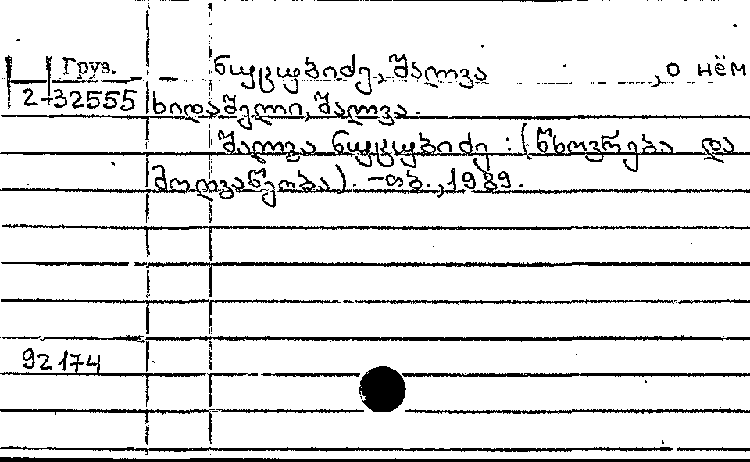 Груз. ნუცუბიძე, შალვა , о нём
2-32555 ხიდაშელი, შალვა.
შალვა ნუცუბიძე : (ცხოვრება და
მოღვაწეობა). - თბ., 1989.
92174